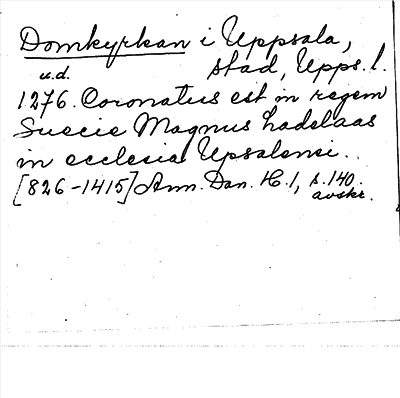 Domkyrkan i Uppsala,
stad, Upps. l.
u.d.
1276. Coronatus est in regem
Suecie Magnus hadelaas
in ecclesia Upsalensi.
[826-1415] Ann. Dan. H. 1, s. 140.
avskr.